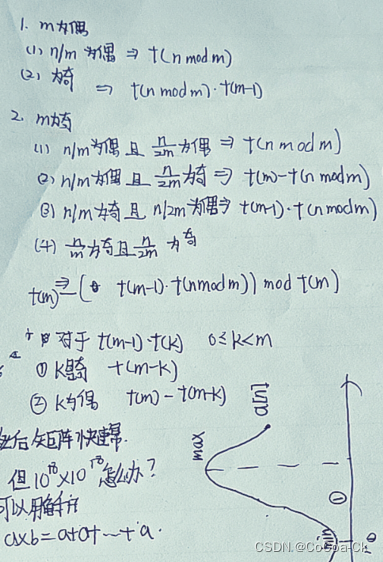 1. m为偶
(1) n/m 为偶 ⇒ t(n mod m)
(2) 为奇 ⇒ t(n mod m)·t(m-1)
2. m为奇
(1) n/m为偶且 n/2m 为偶 ⇒ t(n mod m)
(2) n/m为偶且 n/2m 为奇 ⇒ t(m)-t(n mod m)
(3) n/m为奇且 n/2m 为偶⇒ t(m-1)·t(n mod m)
(4) n/m 为奇且 n/2m 为奇
⇒ t(m)-( t(m-1)·t(n mod m)) mod t(m)
对于 t(m-1)·t(k) 0≤k<m
① k为奇 t(m-k)
② k为偶 t(m)-t(m-k)
然后矩阵快速幂.
但10^18×10^18怎么办?
可以用
a×b=a+a+…+a.
a[n]
max
①
min
CSDN @Cocoa-Ck